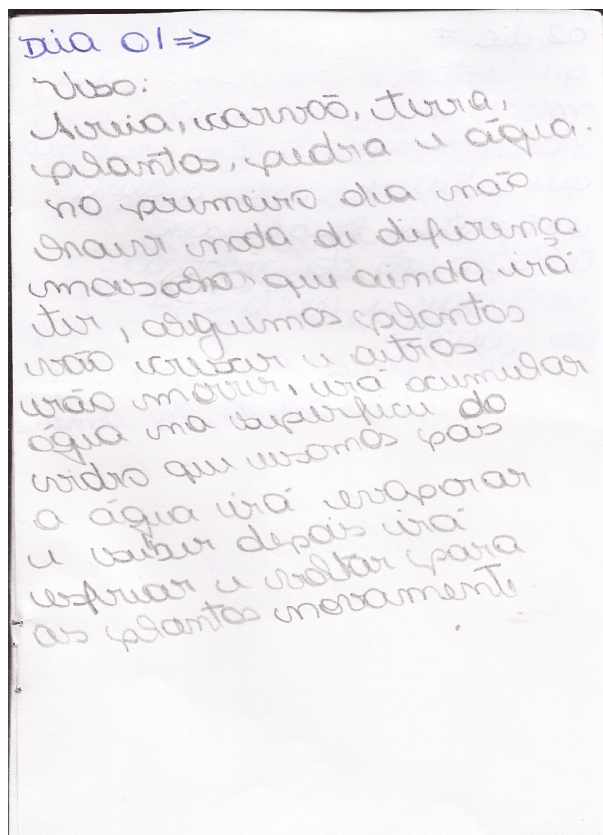 Dia 01⇒
Uso:
Areia, carvão, terra,
plantas, pedra e água.
no primeiro dia não
houve nada de diferença
mas acho que ainda irá
ter, algumas plantas
vão cresar e outros
irão morrer, irá acumular
água na superficie do
vidro que usamos pois
a água irá evaporar
e subir depois irá
esfriar e voltar para
as plantas novamente